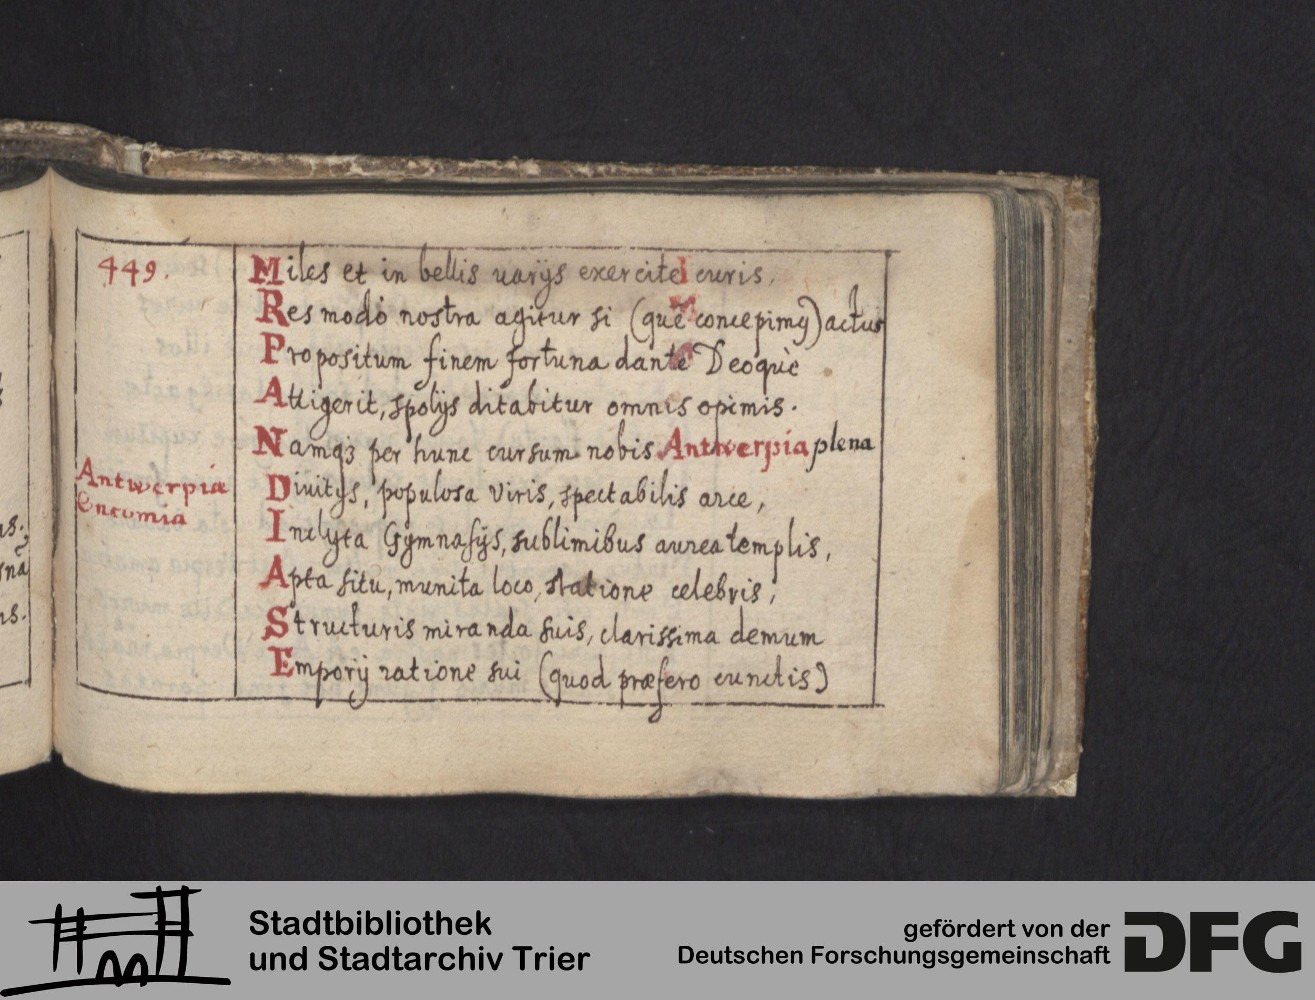 449.
Miles et in bellis uarijs exercite curis,
Res modò nostra agitur si (quē concepimꝰ) actus
Propositum finem fortuna dante Deoquè
Attigerit, spolijs ditabitur omnis opimis.
Namqꝫ per hunc cursum nobis Antwerpia plena
Antwerpiæ
Encomia
Diuitijs, populosa viris, spectabilis arce,
Inclyta Gymnasijs, sublimibus aurea templis,
Apta situ, munita loco, statione celebris,
Structuris miranda suis, clarissima demum
Emporij ratione sui (quod præfero cunctis)
Stadtbibliothek
und Stadtarchiv Trier
gefördert von der
Deutschen Forschungsgemeinschaft
DFG